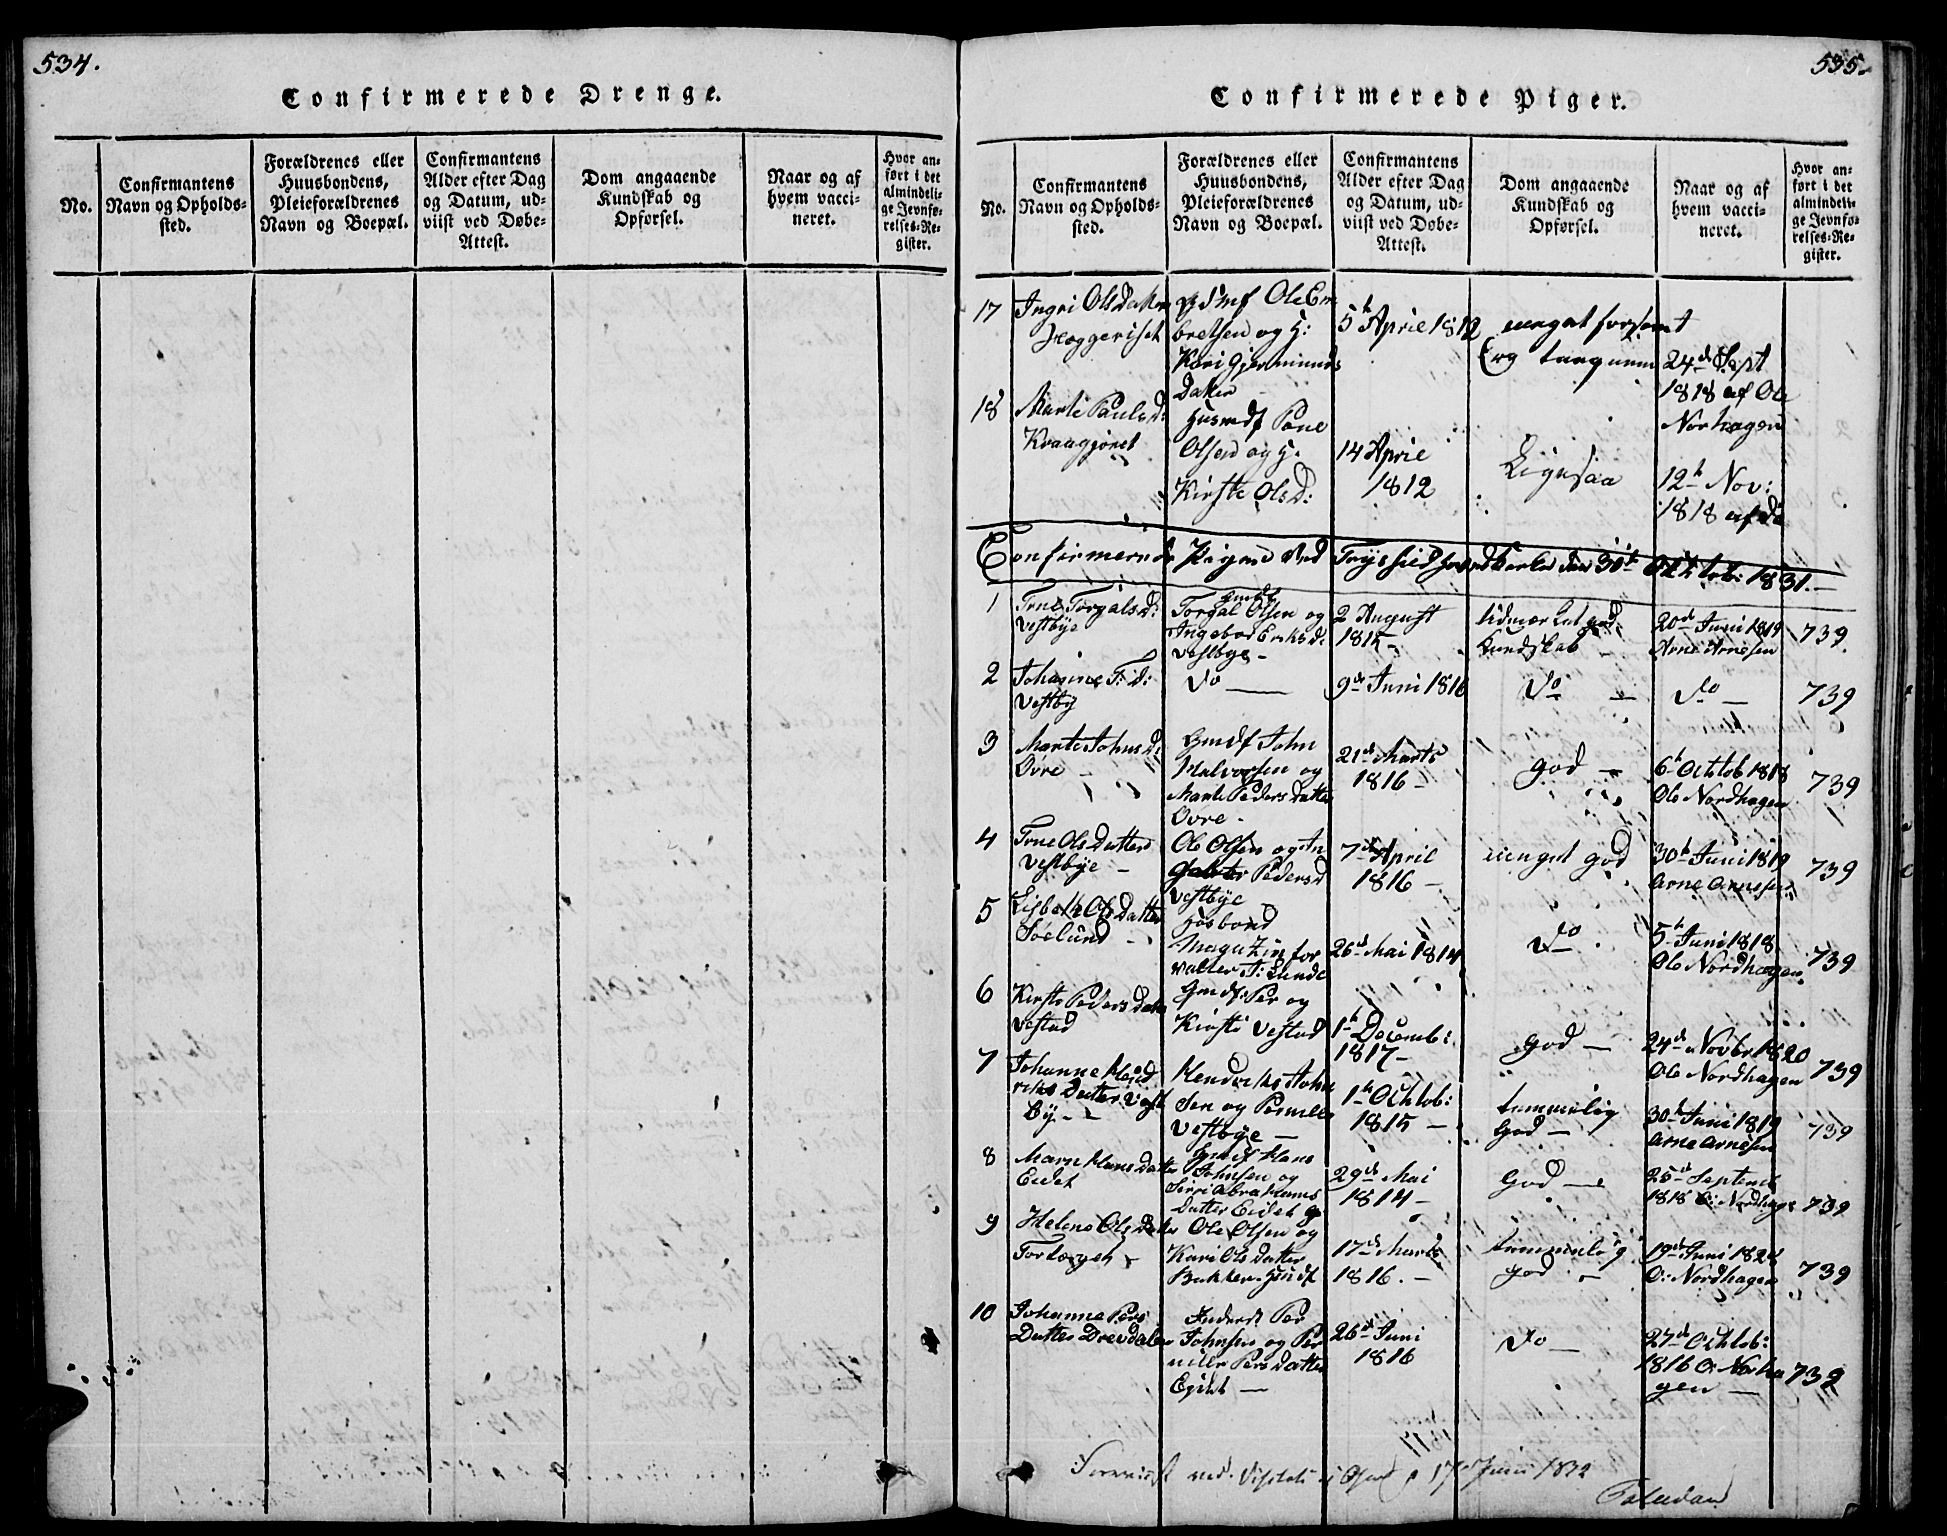 534.
Confirmerede Drenge.
No.
Confirmantens
Navn og Opholds-
sted.
Forældrenes eller
Huusbondens,
Pleieforældrenes
Navn og Boepæl.
Confirmantens
Alder efter Dag
og Datum, ud-
viist ved Døbe-
Attest.
Dom angaaende
Kundskab og
Opførsel.
Naar og af
hvem vacci-
neret.
Hvor an-
ført i det
almindeli-
ge Jevnfø-
relses-Re-
gister.
535.
Confirmerede Piger.
No.
Confirmantens
Navn og Opholds-
sted.
Forældrenes eller
Huusbondens,
Pleieforældrenes
Navn og Boepæl.
Confirmantens
Alder efter Dag
og Datum, ud-
viist ved Døbe-
Attest.
Dom angaaende
Kundskab og
Opførsel.
Naar og af
hvem vacci-
neret.
Hvor an-
ført i det
almindeli-
ge Jevnfø-
relses-Re-
gister.
17
Ingri Olsdatter
Heggeriset
Ole Em
bretsen og H:
Kari Gjermunds
Datter
5t April 1812
meget forsømt
24d Sept
1818 af Ole
Norhagen
18
Marte Paulsd:
Kraagjønet
Husmdf
Olsen og H.
Kirste Olsd:
14 April
1812
Ligesaa
12t Nov:
1818 af do
Confirmerede Pigene ved Trysild hovedkirke den 30t Octob: 1831.
1
Trne Torgalsd:
Vestbye
Gmdf
Torgal Olsen og
Ingebor Eriksd:
Vestbye -
2 August
1815 -
Udmærket god
Kundskab
20d Juni 1819
Arne Arnesen
739
2
Johanne T: d:
Vestby
Do
9de Juni 1816
Do -
Do -
739
3
Marte Johnsd:
Øvre -
Gmdf John
Halvorsen og
Marte Peders datter
Øvre -
21d Marts
1816 -
god -
6t Octob 1818
Ole Nordhagen
739
4
Trne Olsdatter
Vestbye -
Ole Olsen og
Pedersd
Vestbye
7d April
1816 -
meget god
30t Juni 1819
Arne Arnesen
739
5
Lisbeth Olsdatter
Søelund -
Hosbond
Magazinfor
valter T: Lunde
26d Mai 1814
Do.
5t Juni 1818
Ole Nordhagen
739
6
Kirsti Pedersdatter
Vestad
Gmdf: Per og
Kirsti Vestad
1t Decemb:
1817 -
god -
24d Novbr 1820
Ole Nordhagen
739
7
Johanne Hend
riks Datter Vest
by -
Henderik John
sen og Pernille
Vestbye -
1t Octob:
1815 -
temmelig
god -
30t Juni 1819
Arne Arnesen
739
8
Maren Hansdatter
Eidet
Gmdf Hans
Johnsen og
Sirri Abrahams
Datter Eidet
29d Mai
1814 -
god -
25d Septemb
1818 O: Nordhage
739
9
Helene Olsdatter
Ole Olsen og
Kari Olsdatter
Bakken Gmdf
17d Marts
1816. -
temmelig
god -
19d Juni
O: Nordhagen
739
10
Johanne Pers
Datter Drevdalen
Inderst Per
Johnsen og Per
nille Persdatter
26d Juni
1816
Do -
27d Octob:
1816 O: Norha
gen -
739
ved Visitats i 17 Juni 1832